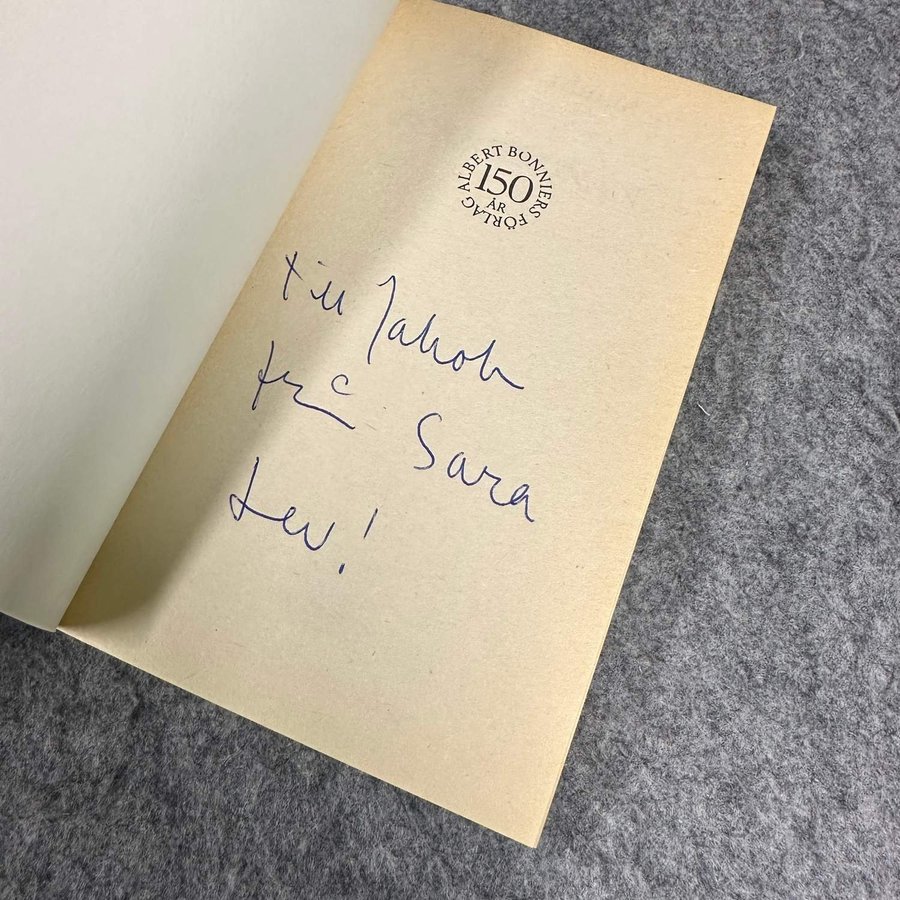 ALBERT BONNIERS FÖRLAG
150
ÅR
till Jakob
från Sara
Lev!